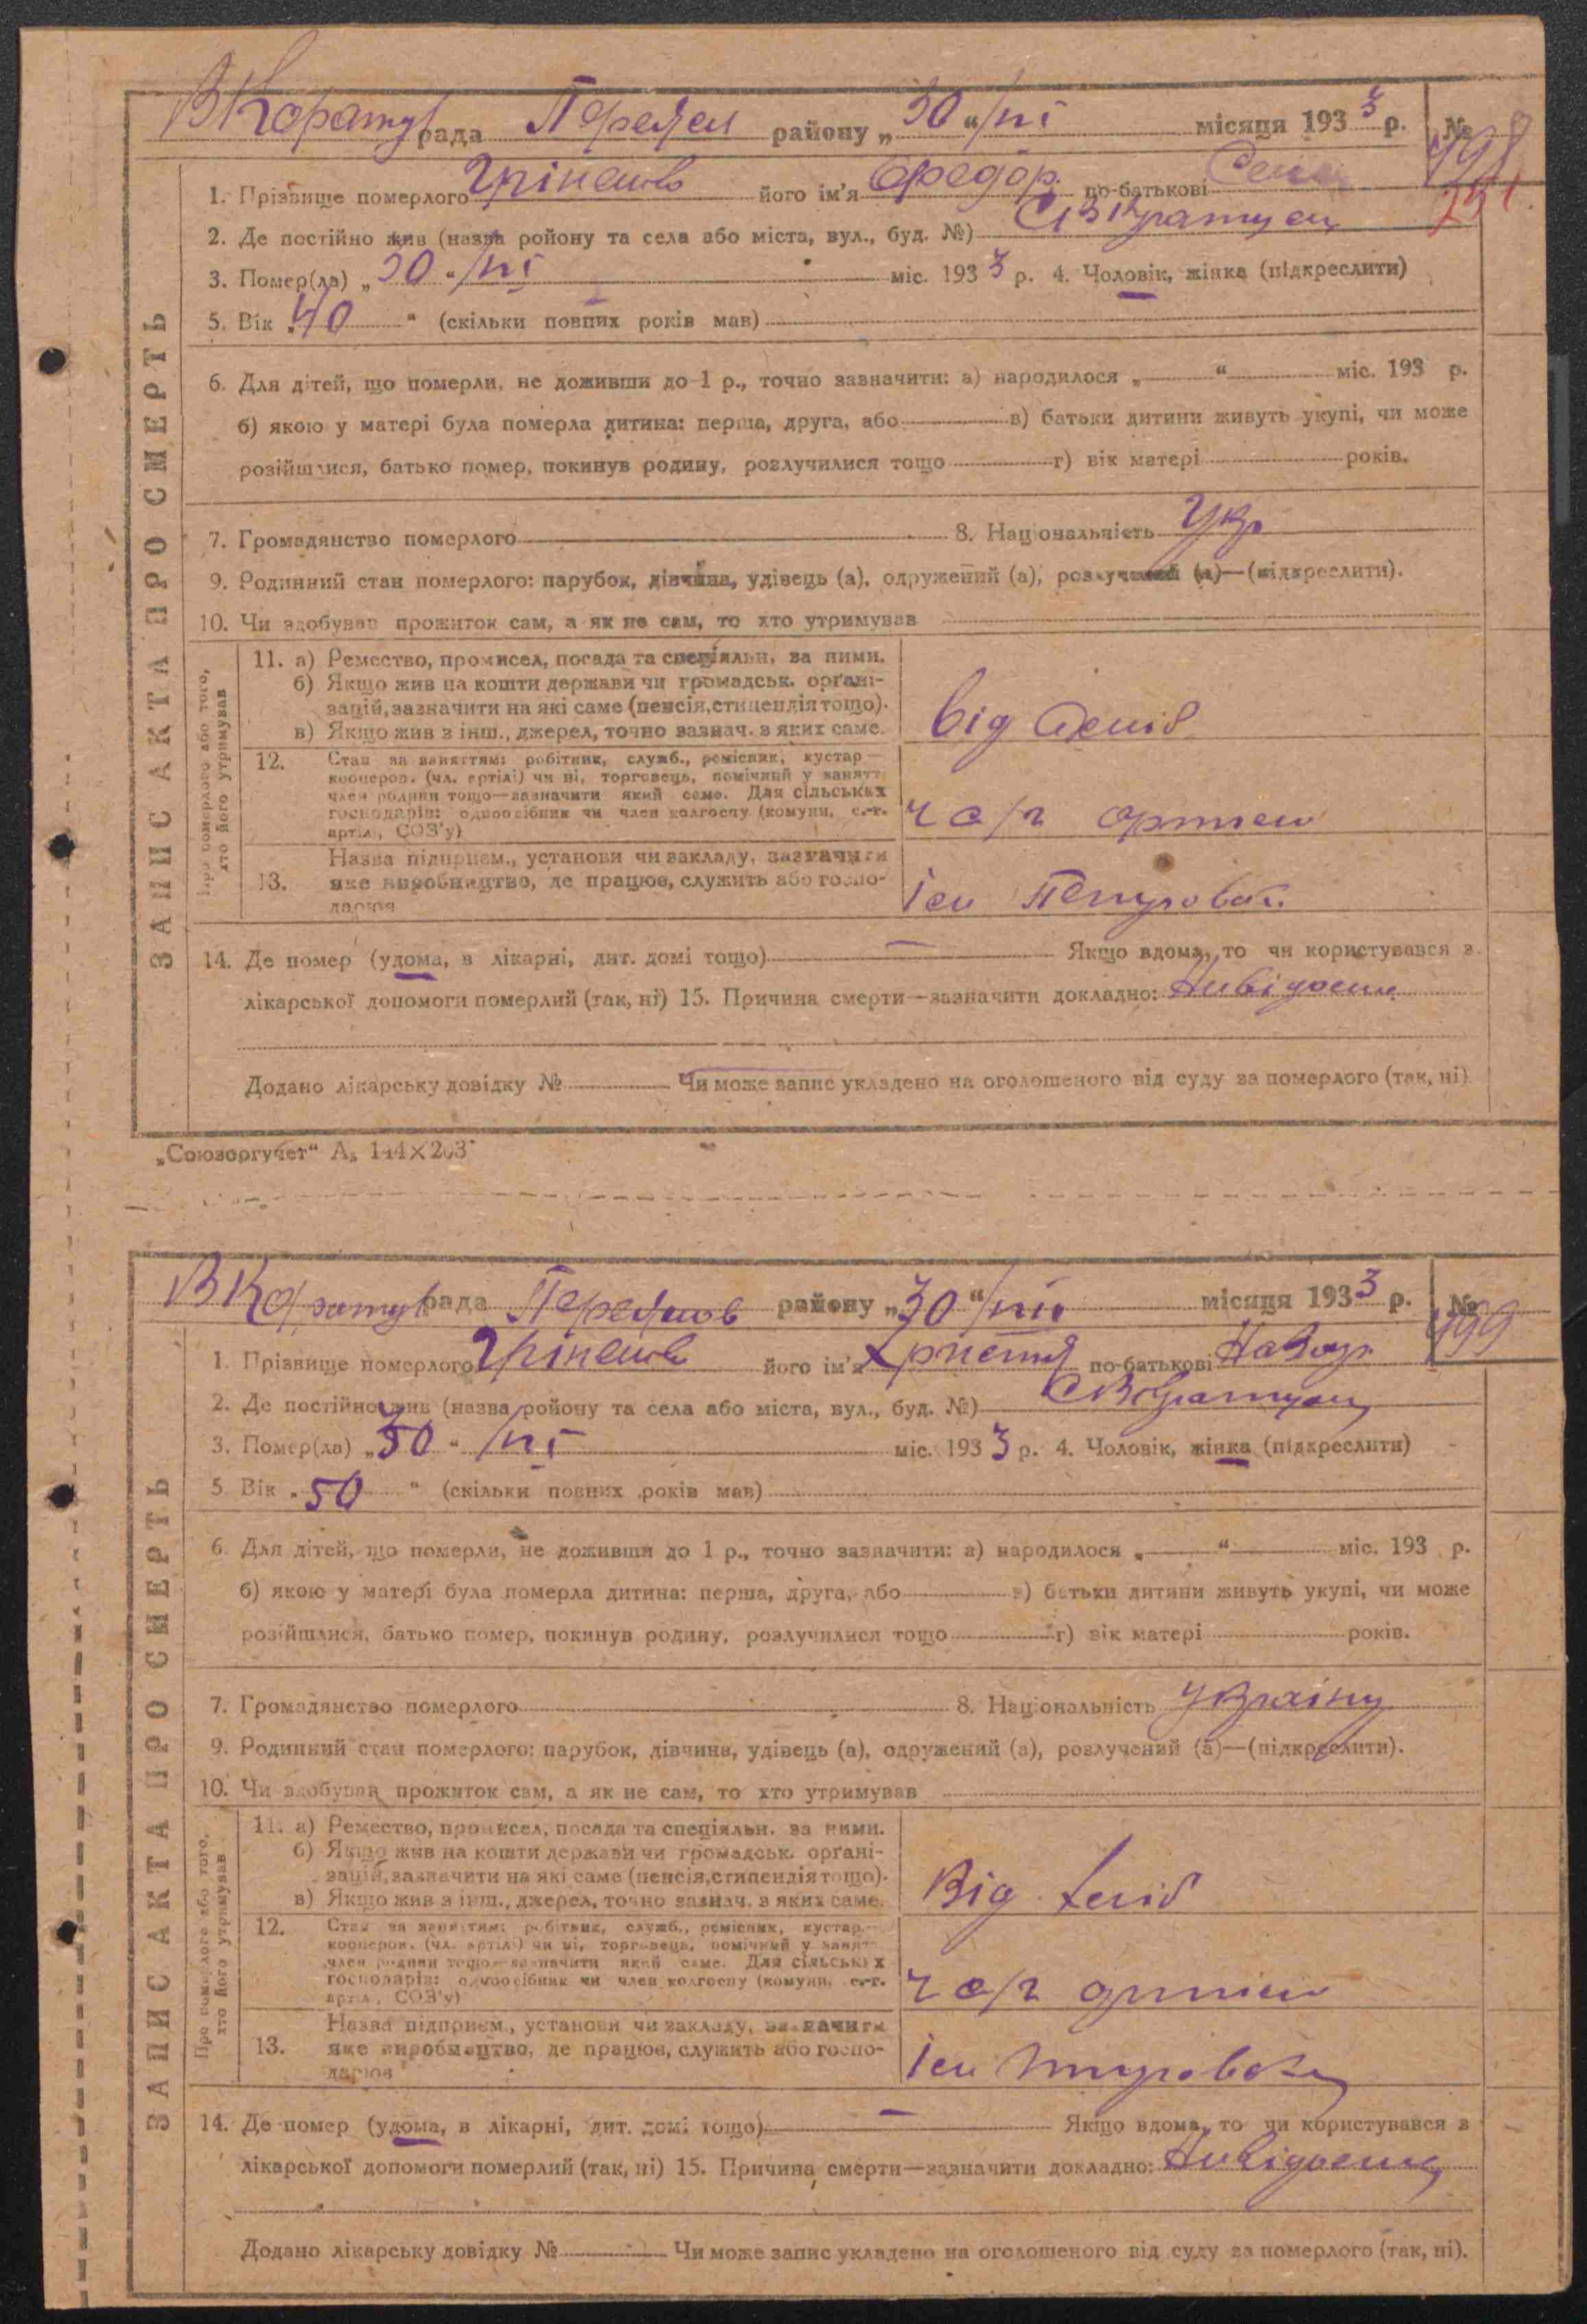 ЗАПИС АКТА ПРО СМЕРТЬ
В Каратул рада Переяслов району „30“ /VI місяця 1933 р. № 498
751
1. Прізвище померлого його ім'я Федор по-батькові
2. Де постійно жив (назва ройону та села або міста, вул., буд. №)
3. Помер(ла) „30“ /VI міс. 1933 р. 4. Чоловік, жінка (підкреслити)
5. Вік „40“ (скільки повних років мав)
6. Для дітей, що померли, не доживши до 1 р., точно зазначити: а) народилося „ “ міс. 193 р.
б) якою у матері була померла дитина: перша, друга, або в) батьки дитини живуть укупі, чи може
розійшлися, батько помер, покинув родину, розлучилися тощо г) вік матері років.
7. Громадянство померлого 8. Національність Укр
9. Родинний стан померлого: парубок, дівчина, удівець (а), одружений (а), розлучений (а)—(підкреслити).
10. Чи здобував прожиток сам, а як не сам, то хто утримував
Про померлого або того, хто його утримував
11. а) Ремество, промисел, посада та спеціяльн. за ними.
б) Якщо жив на кошти держави чи громадськ. органі-
зацій, зазначити на які саме (пенсія, стипендія тощо).
в) Якщо жив з інш., джерел, точно зазнач. з яких саме.
від
12. Стан за заняттям: робітник, служб., ремісник, кустар—
кооперов. (чл. артілі) чи ні, торговець, помічний у занятт
член родини тощо—зазначити який саме. Для сільських
господарів: одноосібник чи член колгоспу (комуни, с.-г.
артіл., СОЗ'у)
ч с/г
13. Назва підприєм., установи чи закладу, зазначити
яке виробництво, де працює, служить або госпо-
дарює
14. Де помер (удома, в лікарні, дит. домі тощо) — Якщо вдома, то чи користувався з
лікарської допомоги померлий (так, ні) 15. Причина смерти—зазначити докладно:
Додано лікарську довідку № Чи може запис укладено на оголошеного від суду за померлого (так, ні)
„Союзоргучет“ А₅ 144×203
ЗАПИС АКТА ПРО СМЕРТЬ
В Каратул рада Переяслов району „30“ /VI місяця 1933 р. № 499
1. Прізвище померлого його ім'я по-батькові Назар
2. Де постійно жив (назва ройону та села або міста, вул., буд. №)
3. Помер(ла) „30“ /VI міс. 1933 р. 4. Чоловік, жінка (підкреслити)
5. Вік „50“ (скільки повних років мав)
6. Для дітей, що померли, не доживши до 1 р., точно зазначити: а) народилося „ “ міс. 193 р.
б) якою у матері була померла дитина: перша, друга, або в) батьки дитини живуть укупі, чи може
розійшлися, батько помер, покинув родину, розлучилися тощо г) вік матері років.
7. Громадянство померлого 8. Національність
9. Родинний стан померлого: парубок, дівчина, удівець (а), одружений (а), розлучений (а)—(підкреслити).
10. Чи здобував прожиток сам, а як не сам, то хто утримував
Про померлого або того, хто його утримував
11. а) Ремество, промисел, посада та спеціяльн. за ними.
б) Якщо жив на кошти держави чи громадськ. органі-
зацій, зазначити на які саме (пенсія, стипендія тощо).
в) Якщо жив з інш., джерел, точно зазнач. з яких саме.
Від
12. Стан за заняттям: робітник, служб., ремісник, кустар.—
кооперов. (чл. артілі) чи ні, торговець, помічний у занятт
член родини тощо—зазначити який саме. Для сільських
господарів: одноосібник чи член колгоспу (комуни, с.-г.
артіл., СОЗ'у)
ч с/г
13. Назва підприєм., установи чи закладу, зазначити
яке виробництво, де працює, служить або госпо-
дарює
14. Де помер (удома, в лікарні, дит. домі тощо) — Якщо вдома, то чи користувався з
лікарської допомоги померлий (так, ні) 15. Причина смерти—зазначити докладно:
Додано лікарську довідку № Чи може запис укладено на оголошеного від суду за померлого (так, ні).